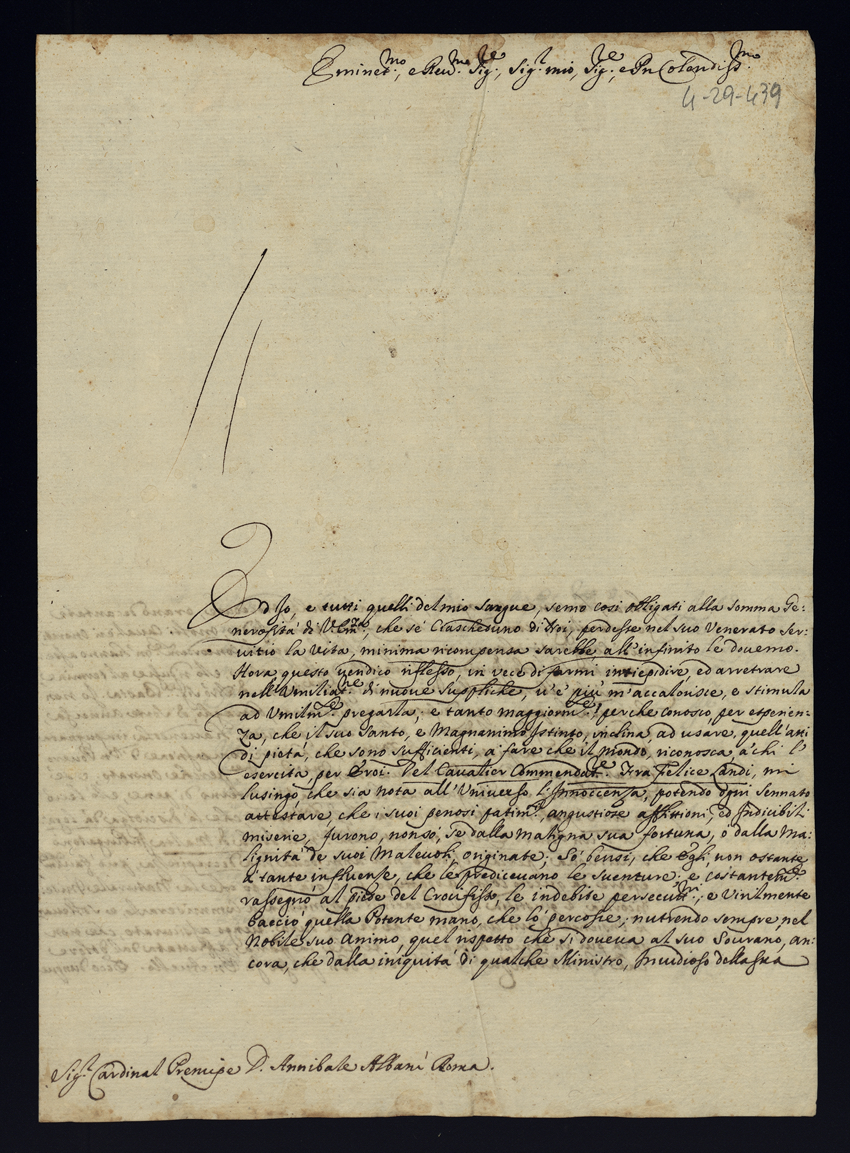 Eminet.mo, e Reu.mo Sig.re, Sig.r mio, Sig.re, e Pn Colendiss.mo
4-29-439
Ed Io, e tutti quelli del mio Sangue, semo così obligati alla somma Ge:
nerosità di V. Em.za, che se Ciascheduno di Noi, perdesse nel suo Venerato ser:
vitio la Vita, minima ricompensa sarebbe all' infinito le douemo.
Hora, questo ueridico riflesso, in vece di farmi intiepidire, ed arretrare
nell' Vmiliat.ne di nuove suppliche, u'è più m'accalorisce, e stimula
ad Vmilm.te pregarla; e tanto maggiorm.te, perche conosco, per esperien:
za, che il suo Santo, e Magnanimo Istinto, inclina, ad usare, quell' atti
di pietà, che sono sufficienti, a fare che il mondo, riconosca, a' chi l'
esercita, per Eroi. Del Caualier Commendat.re Fra Felice Landi, mi
lusingo, che sia nota all' Vniverso, l'Innoccenza, potendo ogni sennato
attestare, che i suoi penosi patim.ti, angustiose afflittioni, ed Indicibili
miserie, furono, nonsò, se dalla maligna sua fortuna, o dalla Ma:
lignità de suoi Maleuoli, originate; Sò bensì, che Egli, non ostante
le tante influense, che le prediceuano le suenture; e costantem.te
rassegnò al piede del Crocifisso, le indebite persecut.ni; e Virilmente
bacciò quella Potente mano, che lo percosse; nutrendo sempre, nel
Nobile suo Animo, quel rispetto che si doueua al suo Sourano, an:
cora, che dalla iniquità di qualche Ministro, Inuidioso della sua
Sig.r Cardinal Prencipe D. Annibale Albani Roma.